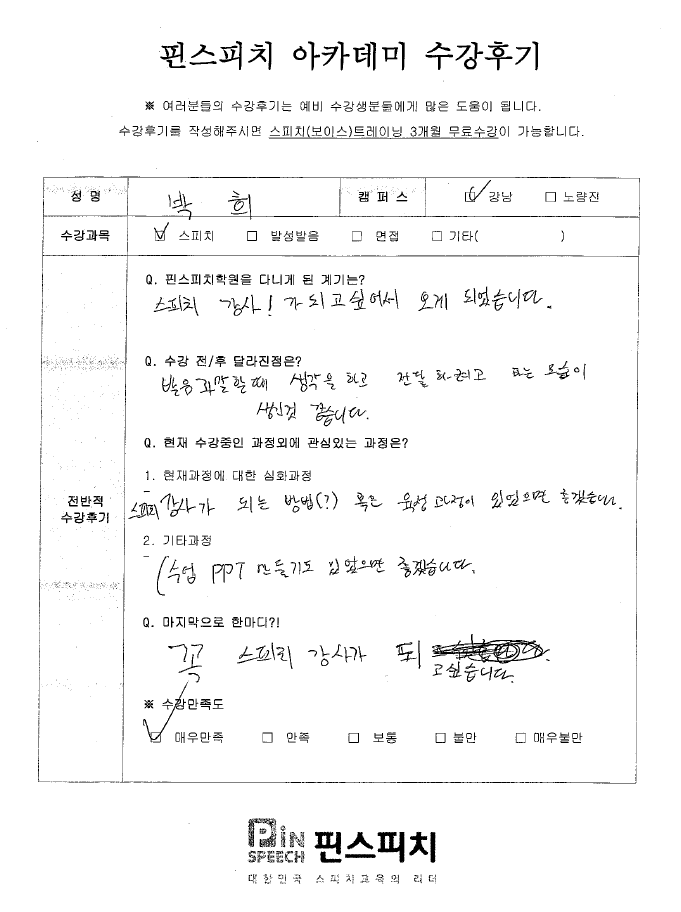 핀스피치 아카데미 수강후기
※ 여러분들의 수강후기는 예비 수강생분들에게 많은 도움이 됩니다.
수강후기를 작성해주시면 스피치(보이스)트레이닝 3개월 무료수강이 가능합니다.
성 명 박 희 캠 퍼 스 ☑ 강남 □ 노량진
수강과목 ☑ 스피치 □ 발성발음 □ 면접 □ 기타( )
Q. 핀스피치학원을 다니게 된 계기는?
스피치 강사! 가 되고싶어서 오게 되었습니다.
Q. 수강 전/후 달라진점은?
발음과말할때 생각을 하고 전달 하려고 하는 모습이
생긴것 같습니다.
Q. 현재 수강중인 과정외에 관심있는 과정은?
1. 현재과정에 대한 심화과정
전반적
수강후기
스피치 강사가 되는 방법(?) 혹은 육성과정이 있었으면 좋겠습니다.
2. 기타과정
(수업 PPT 만들기도 있었으면 좋겠습니다.
Q. 마지막으로 한마디?!
꼭 스피치 강사가 되
고싶습니다.
※ 수강만족도
☑ 매우만족 □ 만족 □ 보통 □ 불만 □ 매우불만
PiN
SPEECH
핀스피치
대한민국 스피치교육의 리더